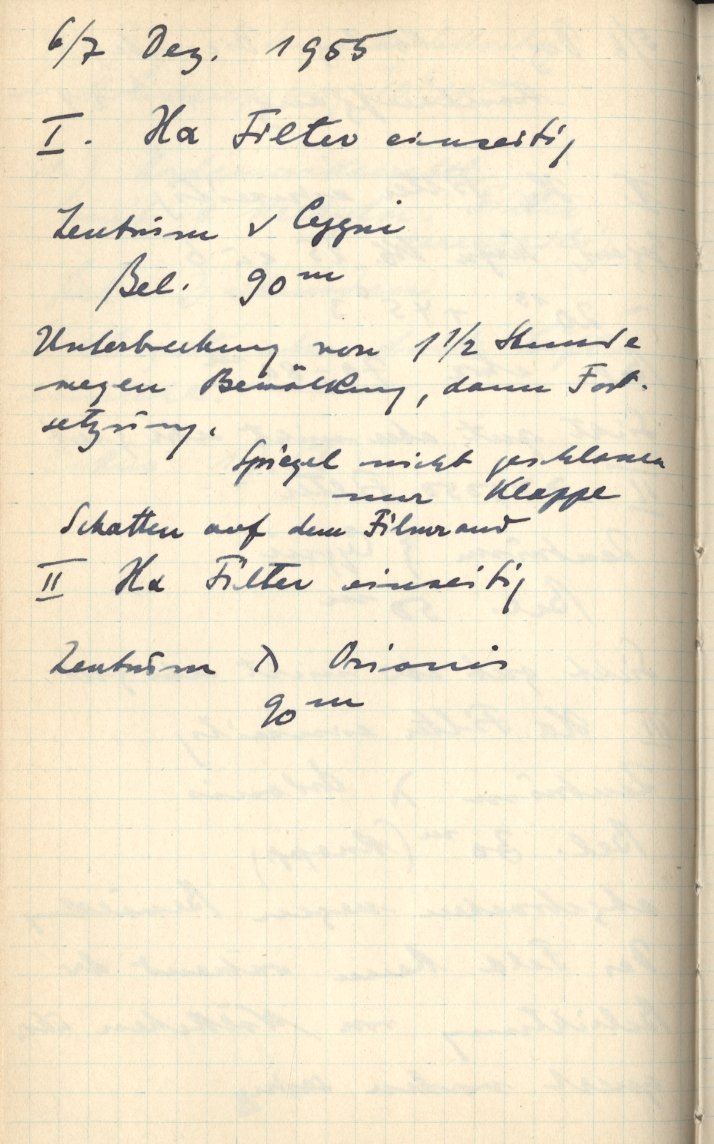 6/7 Dez. 1955
I. Hα Filter einseitig
Zentrum γ Cygni
Bel. 90ᵐ
Unterbrechung von 1 1/2 Stunde
wegen Bewölkung, dann Fort-
setzung.
Spiegel nicht geschlossen
nur Klappe
Schatten auf dem Filmrand
II Hα Filter einseitig
Zentrum λ Orionis
90ᵐ